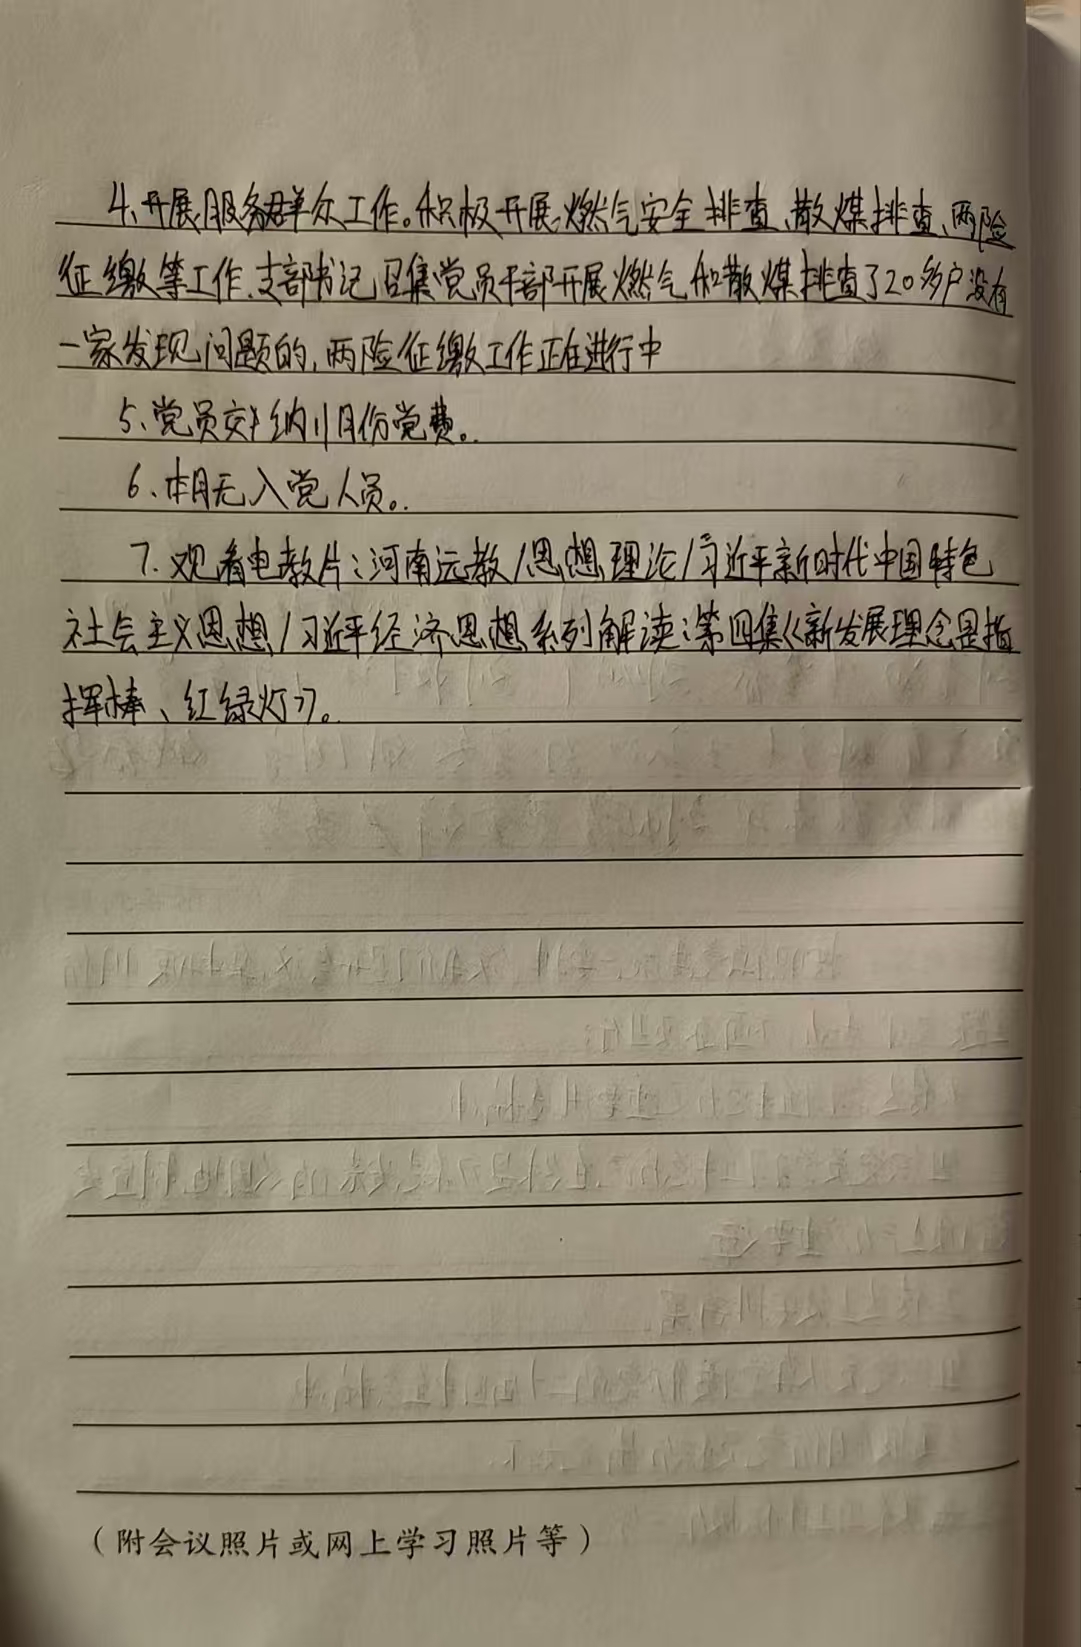 4、开展服务群众工作。积极开展燃气安全排查、散煤排查、两险
征缴等工作.支部书记召集党员干部开展燃气和散煤排查了20多户没有
一家发现问题的,两险征缴工作正在进行中
5、党员交纳11月份党费。
6、本月无入党人员。
7、观看电教片:河南远教/思想理论/习近平新时代中国特色
社会主义思想/习近平经济思想系列解读:第四集《新发展理念是指
挥棒、红绿灯》。
(附会议照片或网上学习照片等)